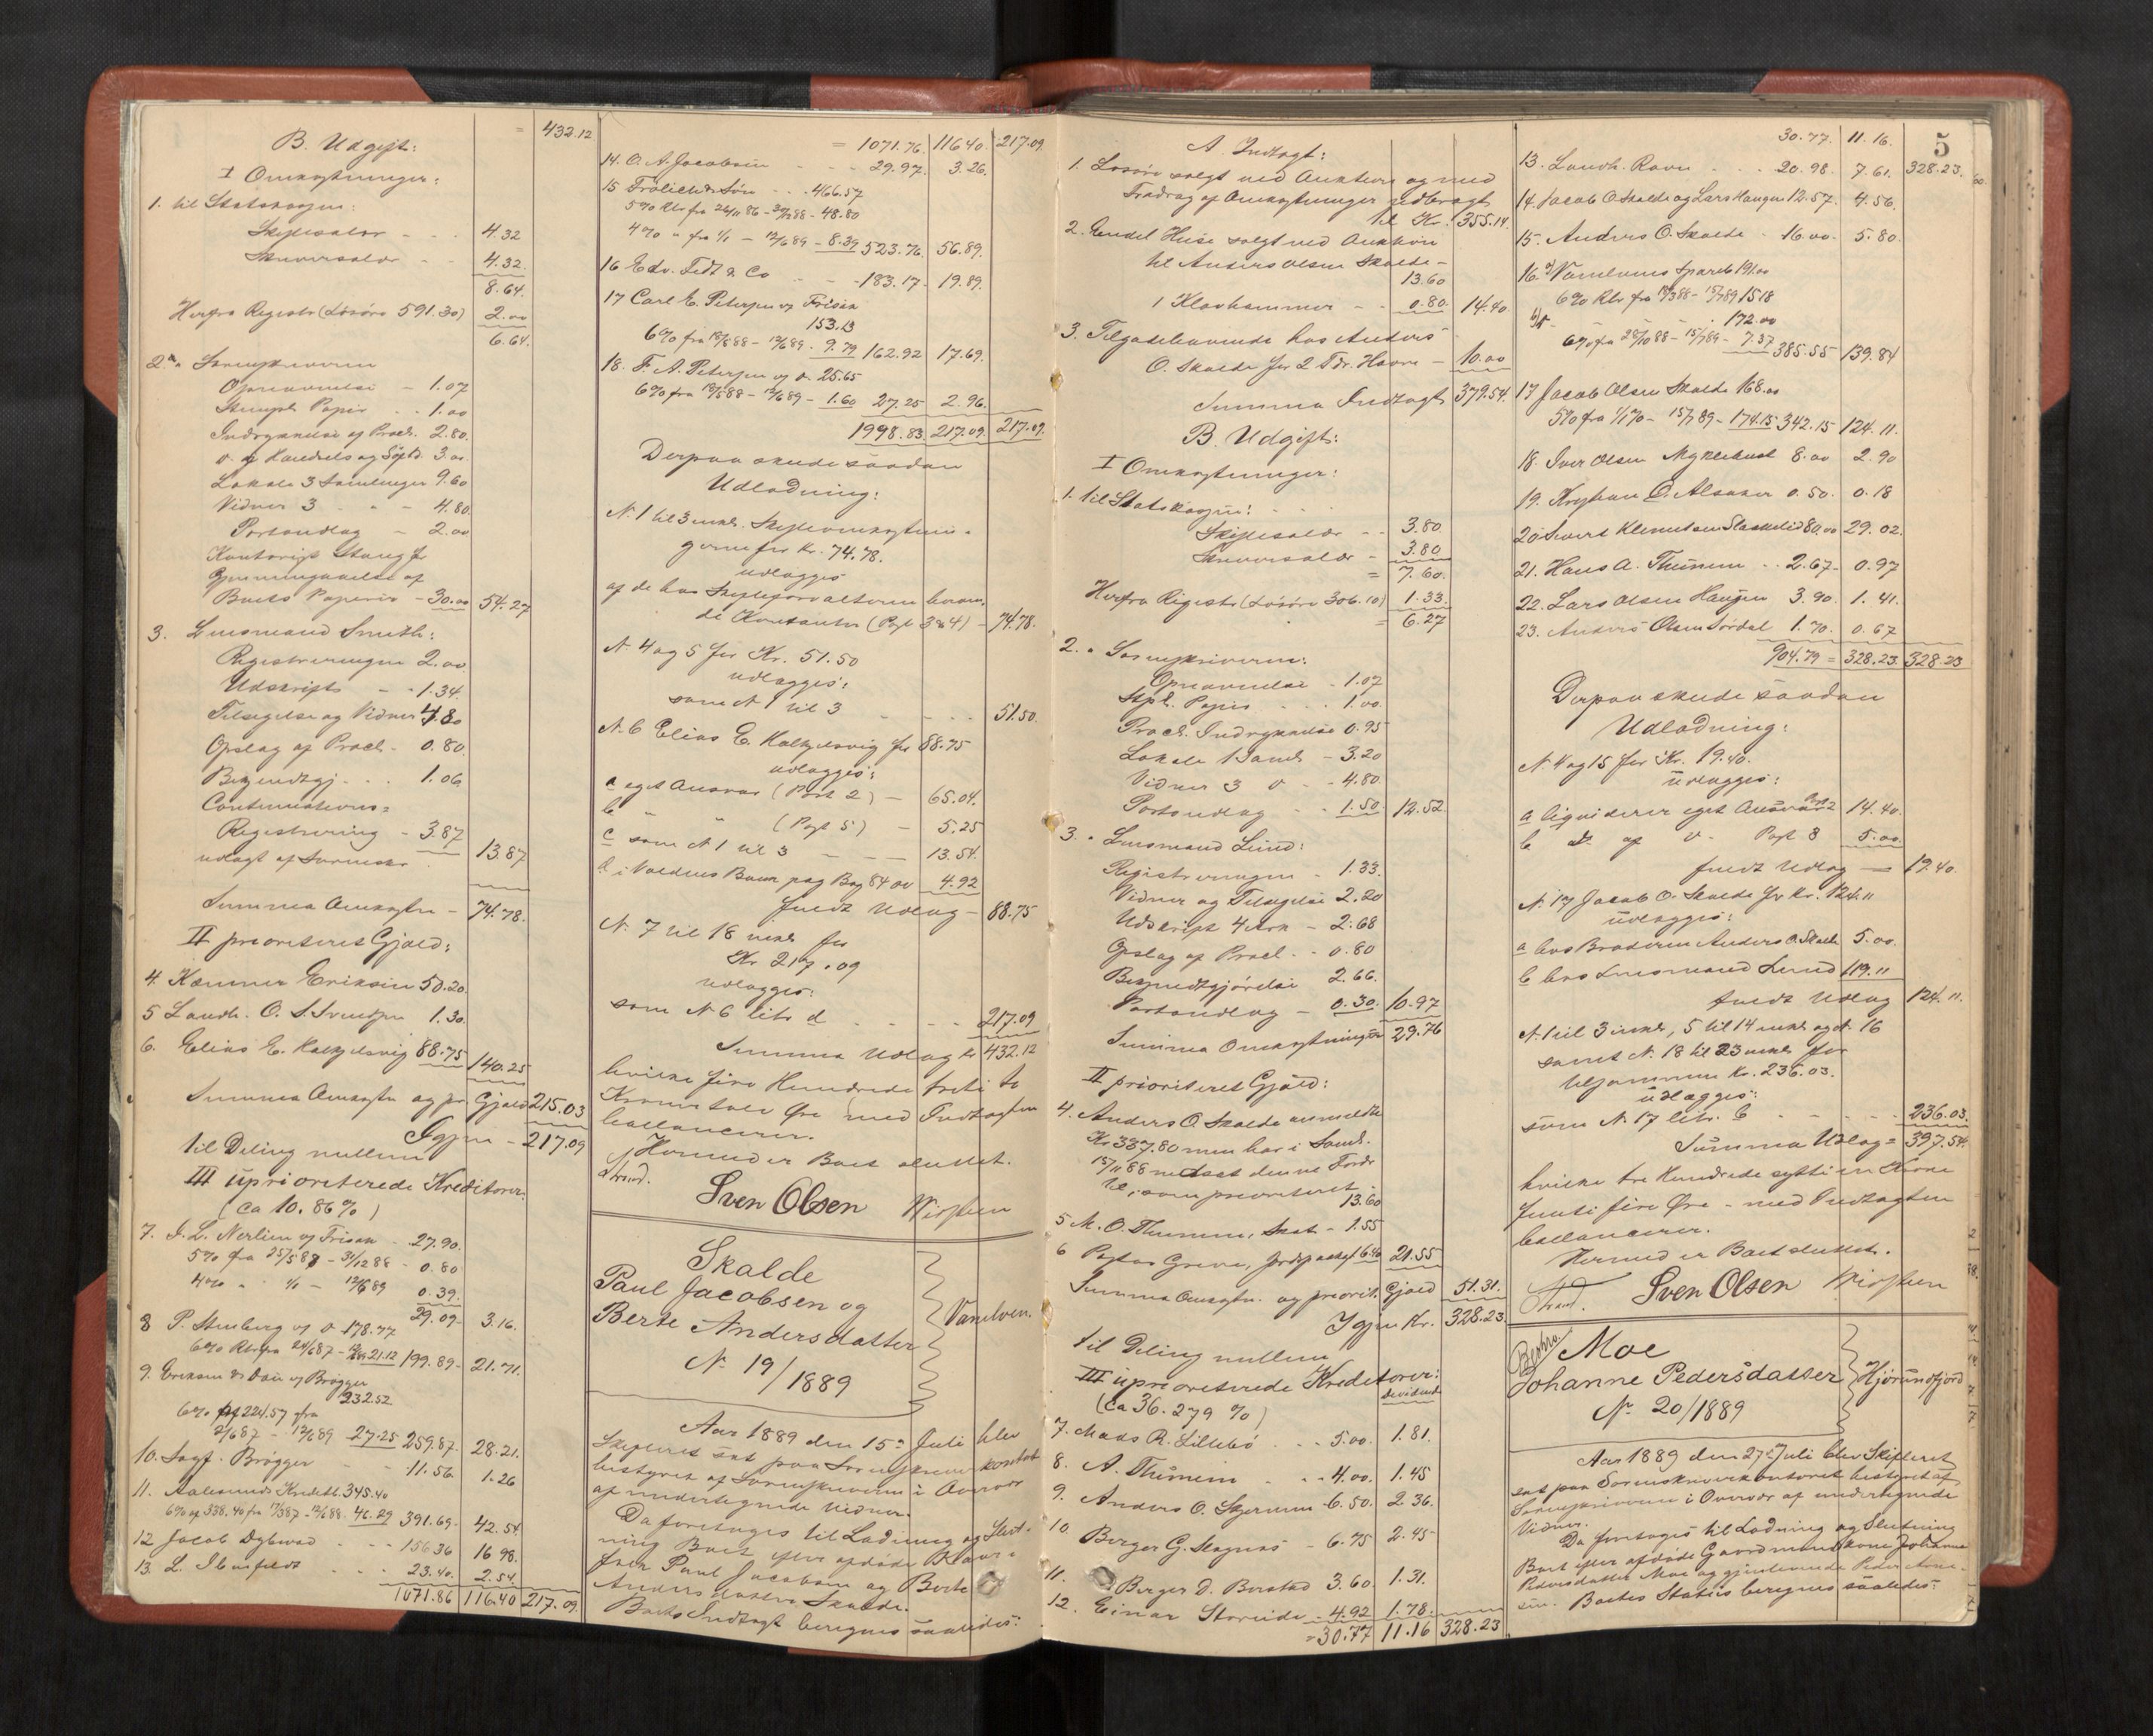 = 432.12
B. Udgift:
I Omkostninger:
1. til Statskassen:
Skiftesalær - - 4.32
Skriversalær - - 4.32
8.64
Herfra Registr (Løsøre 591.30) 2.00
6.64
2. " Sorenskriveren
Opnævnelse - 1.07
Stemplt Papir - - 1.00
Indrykkelse af Procl. 2.80
Lokale 3 Samlinger 9.60
Vidner 3 - - 4.80
Portoudlæg - 2.00
Gjennemgaaelse af
Boets Papirer - 30.00 54.27
3. Lensmand Smith:
Registreringen 2.00
Udskrift - - 1.34
Tilsigelse og Vidner 4.80
Opslag af Procl. - 0.80
Bekjendtgj. . . 1.06
Continuations=
Registrering - 3.87
udlagt af Sorenskr 13.87
Summa Omkostn - 74.78
II prioriteret Gjæld:
4. Kæmner Eriksen 50.20
5 Landh. O. S. Svendsen 1.30
6. Elias E. Kalkjelsvig 88.75 140.25
Summa Omkostn og pr. Gjæld 215.03
Igjen - 217.09
til Deling mellem
III uprioriterede Kreditorer.
(ca 10.86 %)
7. I. L. Nerlien v/ Frisak - 27.90
5% fra 25/5 87 - 31/12 88 - 0.80
4% " 1/1 - 12/6 89 0.39
29.09 - 3.16
8 P. Stenberg v/ o. 178.77
6% Rtr fra 24/6 87 - 12/6 89 21.12 199.89 - 21.71
9. Eriksen & Dair v/ Brøgger
232.52
6% af 224.57 fra
2/6 87 - 12/6 89 27.25 259.87 - 28.21
10. Sagf. Brøgger - - 11.56 1.26
11. Aalesunds Kreditb. 345.40
6% af 338.40 fra 17/3 87 - 12/6 88 - 46.29 391.69 - 42.54
12 Jacob Dybwad - - - 156 36 16 98
13. L. Ibenfeldt . . . 23.40 2.54
1071.86 116.40 217.09
= 1071.76 116 40 217.09
14. O. A. Jacobsen - - 29.97 3.26
15 Frölich & Søn - - . 466.57
5% Rtr fra 24/11 86 - 31/12 88 - 48.80
4% " fra 1/1 - 12/6 89 - 8.39 523.76 56.89
16 Edv. Fett & Co - - 183.17 - 19.89
17 Carl E. Petersen v/ Frisak
153.13
6% fra 18/5 88 - 12/6 89 - 9.79 162.92 17.69
18. F. A. Petersen v/ o. 25.65
6% fra 18/5 88 - 12/6 89 - 1.60 27.25 2.96
1998.83 217.09 217.09
Derpaa skede saadan
Udlodning:
N. 1 til 3 incl. Skifteomkostnin-
gerne for Kr. 74.78.
udlægges
af de hos Skifteforvalteren beroen-
de Kontanter (Post 3 & 4) - 74.78
N. 4 og 5 for Kr. 51.50
udlægges:
som N 1 til 3 - - - - 51.50
N. 6 Elias E. Kalkjelsvig for 88.75
udlægges:
a eget Ansvar (Post 2) - 65.04
b " " (Post 5) - 5.25
c som N 1 til 3 - - - 13.54
d i Voldens Bank paa Bog 84 00 4.92
fuldt Udlæg - 88.75
N. 7 til 18 incl. for
Kr 217.09
udlægges:
som N 6 litr d - - - - 217.09
Summa Udlæg kr 432.12
hvilke fire Hundrede treti to
Kroner tolv Øre med Indtægten
ballancerer.
Hermed er Boet sluttet.
Strand. Sven Olsen
Skalde
Paul Jacobsen og
Berte Andersdatter
N. 19/1889
Vanelven.
Aar 1889 den 15de Juli blev
Skifteret sat paa Sorenskriverkontoret
bestyret af Sorenskriveren i Overvær
af undertegnede Vidner.
Da foretoges til Lodning og Slut-
ning Boet efter afdøde Kaar-
folk Paul Jacobsen og Berte
Andersdatter Skalde.
Boets Indtægt beregnes saaledes:
5
A. Indtægt:
1. Løsøre solgt ved Auktion og med
Fradrag af Omkostninger udbragt
til Kr. 355.14
2. Endel Huse solgt ved Auktion
til Anders Olsen Skalde -
13.60
1 Klovhammer - - 0.80 14.40
3. Tilgodehavende hos Anders
O. Skalde for 2 Tdr. Havre - 10.00
Summa Indtægt 379.54
B. Udgift:
I Omkostninger:
1. til Statskassen: - - -
Skiftesalær - - 3.80
Skriversalær - 3.80
= 7.60
Herfra Registr (Løsøre 306.10) 1.33
= 6.27
2. " Sorenskriveren:
Opnævnelse - 1.07
Stpl. Papir - - - 1.00
Procl. Indrykkelse 0.95
Lokale 1 Saml. - 3.20
Vidner 3 o - - 4.80
Portoudlæg - - 1.50 12.52
3. " Lensmand Lund:
Registreringen - 1.33
Vidner og Tilsigelse 2.20
Udskrift 4 Ark - 2.68
Opslag af Procl. - - 0.80
Bekjendtgjørelse 2.66
Portoudlæg - 0.30 10.97
Summa Omkostninger 29.76
II prioriteret Gjæld:
4. Anders O. Skalde anmeldte
Kr 387.80 men har i Saml.
15/11 88 nedsat denne Fordr
til, som prioriteret -
13.60
5 M. O. Thunem, Skat - 1.55
6 Pastor Greve, Jordpaakast 6.40 21.55
Summa Omkostn. og priorit. Gjæld 51.31
Igjen Kr. 328.23
til Deling mellem
III uprioriterede Kreditorer:
(ca 36.279 %) dividende
7. Mads R. Lillebø . . . 5.00 1.81
8. A. Thunem . . . . 4.00 1.45
9. Anders O. Skjernum - 6.50 2 36
10. Berger G. Stagnæs - 6.75 2.45
11. Berger D. Berstad 3.60 1.31
12. Einar Storeide - 4.92 1.78
= 30.77 11.16 328.23
30.77 11.16
13. Landh. Ravn . . . 20.98 7.61 328.23
14. Jacob O. Skalde og Lars Haugen 12.57 4.56
15. Anders O. Skalde - 16.00 5.80
16 a) Vanelvens Spareb 191.00
6% Rtr fra 19/3 88 - 15/7 89 15 18
b) d - - . 172.00
6% fra 28/10 88 - 15/7 89 - 7.37 385.55 139.84
17 Jacob Olsen Skalde 168.00
5% fra 1/1 70 - 15/7 89 - 174.15 342.15 124.11
18. Iver Olsen Myklebust 8.00 2.90
19. Kristian O. Alsaker 0.50 0.18
20 Sivert Klemetsen 80.00 29.02
21. Hans A. Thunem - - 2.67 - 0.97
22. Lars Olsen Haugen 3.90 1.41
23. Anders Olsen Sørdal 1.70 0.67
904.79 = 328.23 328.23
Derpaa skede saadan
Udlodning:
N. 4 og 15 for Kr. 19.40
udlægges:
a liqviderer eget Ansvar Post 2 14.40
b d af o - Post 8 5.00
fuldt Udlæg - 19.40
N. 17 Jacob O. Skalde for Kr. 124.11
udlægges:
a hos Broderen Anders O. Skalde 5.00
b hos Lensmand Lund 119.11
fuldt Udlæg 124.11
N. 1 til 3 incl., 5 til 14 incl. og N. 16
samt N. 18 til 23 incl. for
tilsammen Kr. 236.03.
udlægges:
som N. 17 litr. b - - - - - 236.03
Summa Udlæg = 397.54
hvilke tre Hundrede sytti en Krone
femti fire Øre - med Indtægten
ballancerer.
Hermed er Boet sluttet.
Strand. Sven Olsen
Moe
Johanne Pedersdatter
N. 20/1889
Hjørundfjord
Aar 1889 den 27de Juli blev Skifteret
sat paa Sorenskriverkontoret bestyret af
Sorenskriveren i Overvær af undertegnede
Vidner.
Da foretoges til Lodning og Slutning
Boet efter afdøde Gaardmandskone Johanne
Pedersdatter Moe og gjenlevende Peder Arne-
sen. Boets Status beregnes saaledes: